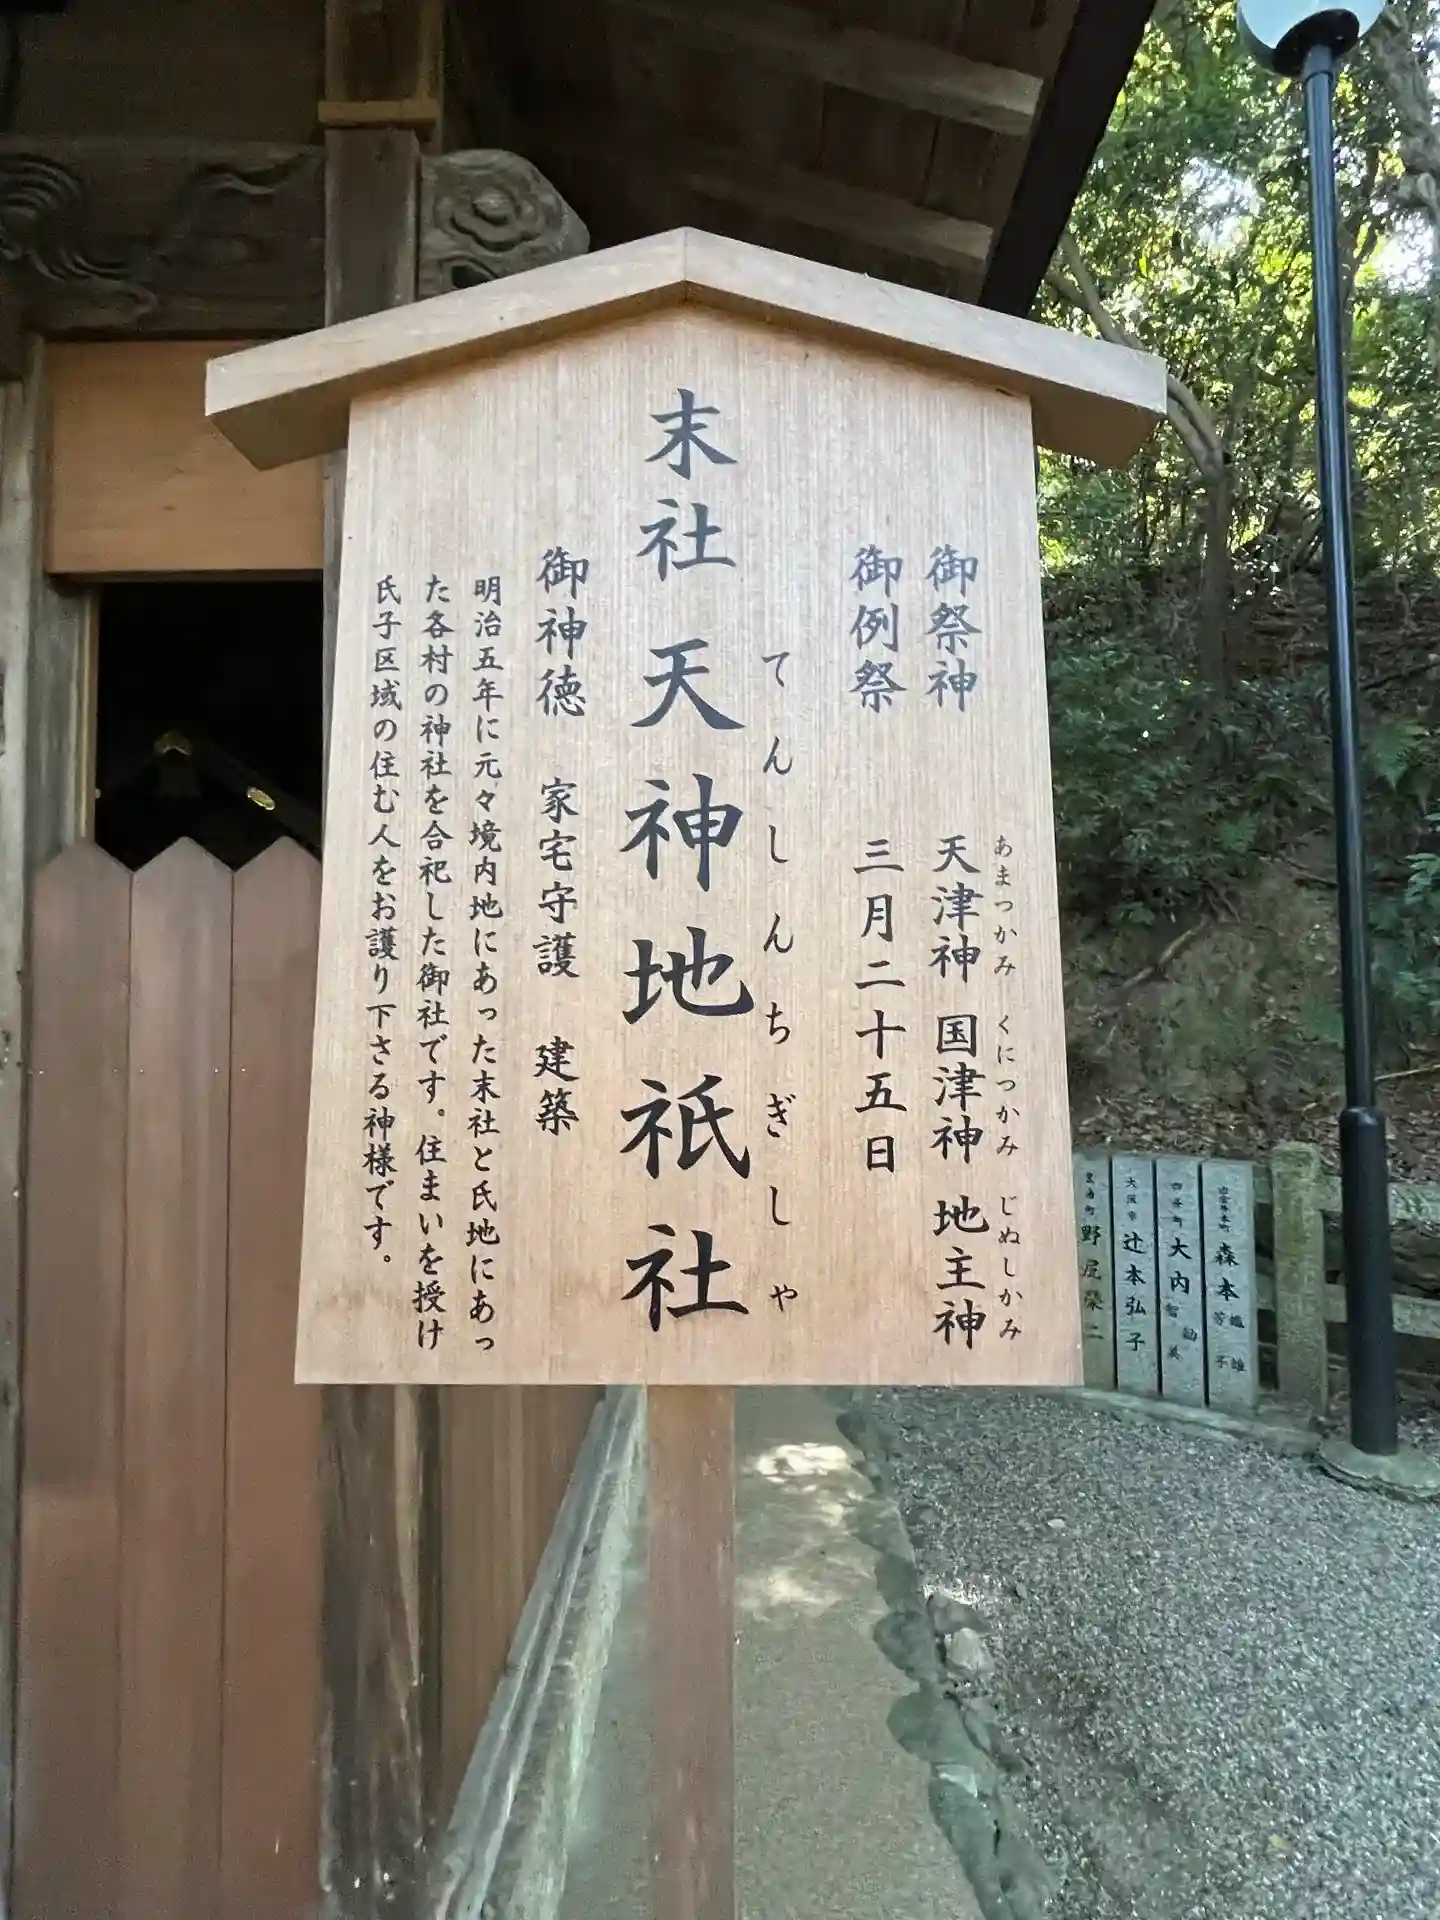 御祭神 天津神 国津神 地主神
あまつかみ くにつかみ じぬしかみ
御例祭 三月二十五日
末社 天神地祇社
てんしんちぎしゃ
御神徳 家宅守護 建築
明治五年に元々境内地にあった末社と氏地にあっ
た各村の神社を合祀した御社です。住まいを授け
氏子区域の住む人をお護り下さる神様です。
森本
大内
大阪市 辻本弘子
野尻榮二